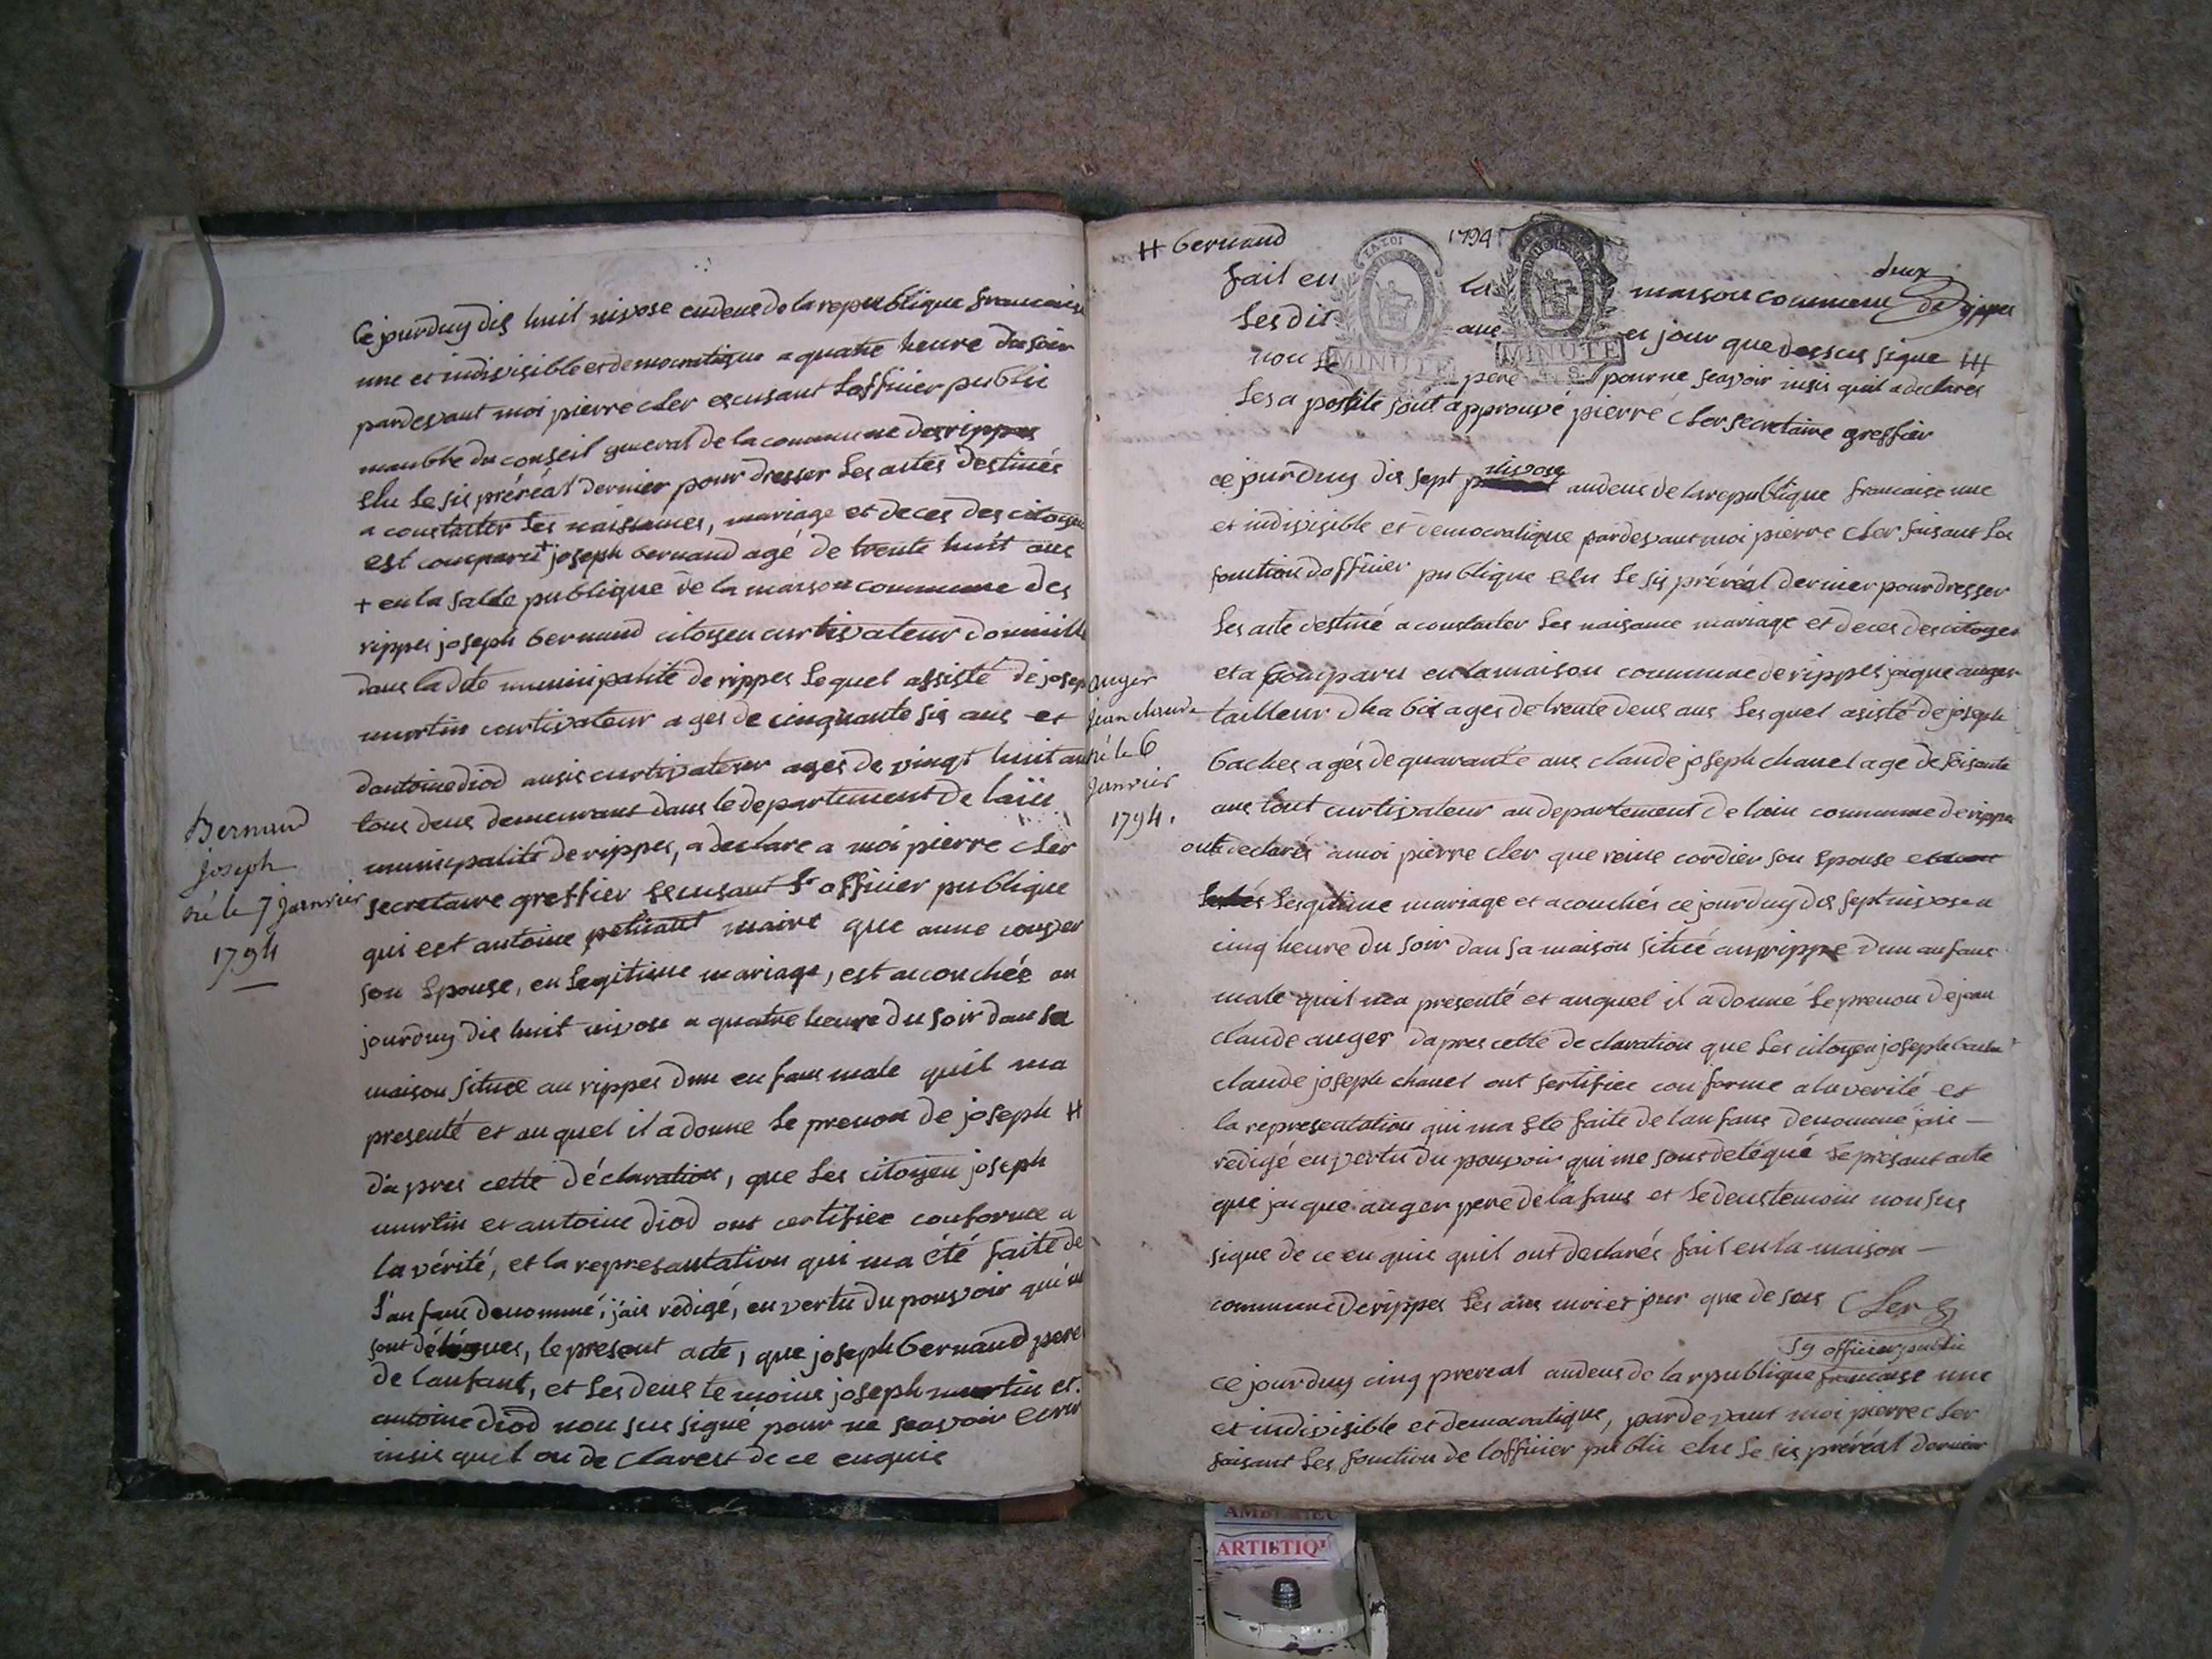 ce jourduy dis huit nivose audeus de la republique francaise
une et indivisible et democratique a quatre heure du soir
pardevant moi pierre cler escusant Lofficier public
manbre du conseil general de la commune desrippes
elu Le sis préréal dernier pour dresser Les actes destinés
a constacter Les naissances, mariage et deces des citoyen
est comparu + joseph bernaud agé de trente huit ans
+ en la salle publique de la maison commune des
rippes joseph bernaud citoyen curtivateur domicille
dans la dite municipalité de rippes Lequel assisté de josep
murtin curtivateur ages de cinquante sis ans et
dantoine diod ausis curtivateur ages de vingt huit an
tous deus demeurant dans le departement de lain
municipalité de rippes, a declare a moi pierre cler
secretaire greffier secusant Lr officier publique
qui est antoine maire que anne
son Epouse, en Legitime mariage, est accouchée au
jourduy dis huit nivose a quatre heure du soir dan sa
maison située au rippes dun enfans male quil ma
presenté et auquel il a donne Le prenon de joseph H
Bernaud
joseph
né le 7 janvier
1794
da pres cette déclaration, que Les citoyen joseph
murtin et antoine diod ont certifiee conforme a
la vérité, et la represantation qui ma été faite de
L'anfans denommé, j'ais redigé, en vertu du pouvoir qui m
sont délégues, le present acte, que joseph bernaud pere
de lanfant, et Les deus temoins joseph murtin et
antoine diod non sus signé pour ne seavoir ecrir
insis quil on de clarest de ce enquie
H bernaud
1794
deux
LA LOI
MINUTE
MINUTE
4. S.
fait en la maison commune de rippes
Les dit ans et jour que dessus signe H
non Le pere pour ne seavoir insis quil a declares
Les a postile sont approuvé pierre cler secretaire greffier
nivose
ce jourduy dis sept audeus de la republique francaise une
et indivisible et democratique pardevant moi pierre cler faisant La
fonction dofficier publique elu Le sis préréal dernier pour dresser
Les acte destiné a constacter Les naisance mariage et deces des citoyen
et a comparu en la maison commune de rippes jaque auger
tailleur dhabis ages de trente deus ans Lesquel asisté de joseph
baches agés de quarante ans claude joseph chanel age de soisante
ans tout curtivateur au departement de lain commune de rippes
auger
jean claude
né le 6
janvier
1794.
ont declarés a moi pierre cler que reine cordier son epouse
Lesquitime mariage et a couchés ce jourduy dis sept nivose a
cinq heure du soir dan sa maison située au rippe dun anfans
male quil ma presenté et auquel il a donné Le prenon de jean
claude auger da pres cette declaration que Les citoyen joseph
claude joseph chanel ont sertifiee conforme a la verité et
la representation qui ma ete faite de lanfans denommé jais
redigé en vertu du pouvoir qui me sont delégué Le présant acte
que jacque auger pere de lafans et Le deus temoin non sus
signe de ce en quie quil ont declarés fait en la maison
commune de rippes Les ans et jour que de sus Cler
officier public
ce jourduy cinq prereal audeus de la rpublique francaise une
et indivisible et democratique, pardevant moi pierre cler
faisant Les fonction de lofficier public elu Le sis préréal dernier
ARTISTIQ